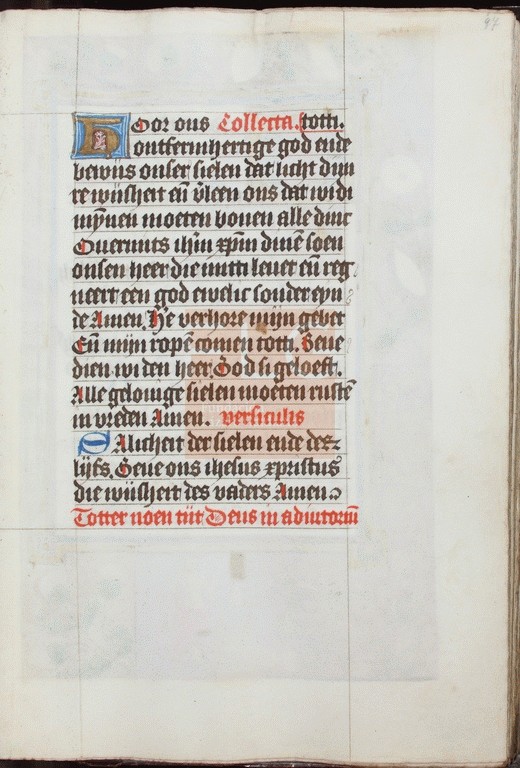 94
Hoor ons Collecta. totti.
ontfermhertige god ende
bewiis onser sielen dat licht dijn
re wiisheit eñ v̄leen ons dat wi di
mỹnen moeten bouen alle dinc
Ouermits ihm̄ xp̄m dinē soen
onsen heer die mitti leuet eñ reg
neert een god ewelic sonder eyn
de Amen. He verhore mijn gebet
Eñ mijn ropē comen totti. Bene
dien wi den heer. God si geloeft.
Alle gelouige sielen moeten rustē
in vreden Amen. versiculis
SAlicheit der sielen ende des
lijfs. Geue ons ihesus xpristus
die wiisheit des vaders Amen.
Totter noen tiit Deus in adiutoriū